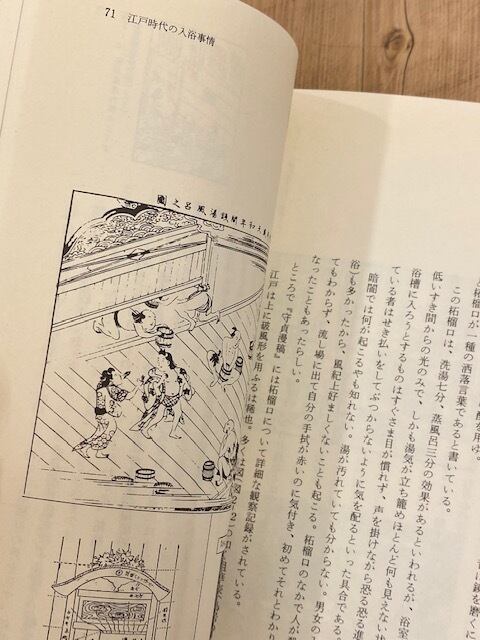 71 江戸時代の入浴事情
柘榴口が一種の洒落言葉であると書いている。
この柘榴口は、洗湯七分、蒸風呂三分の効果があるといわれるが、浴室
低いすき間からの光のみで、しかも湯気が立ち籠めほとんど何も見えない
浴槽に入ろうとするものはすぐさま目が慣れず、声を掛けながら恐る恐る進
ている者はせき払いをしてぶつからないように気を配るといった具合である
暗闇では何が起こるやも知れない。湯が汚れていても分からない。男女の
浴)も多かったから、風紀上好ましくないことも起こる。柘榴口のなかで人が
てもわからず、流し場に出て自分の手拭が赤いのに気付き、初めてそれとわか
なったこともあったらしい。
ところで『守貞漫稿』には柘榴口について詳細な観察記録がされている。
江戸は上に破風形を用ふるは稀也。多くは図(図2-2)の如
年間銭湯風呂之圖